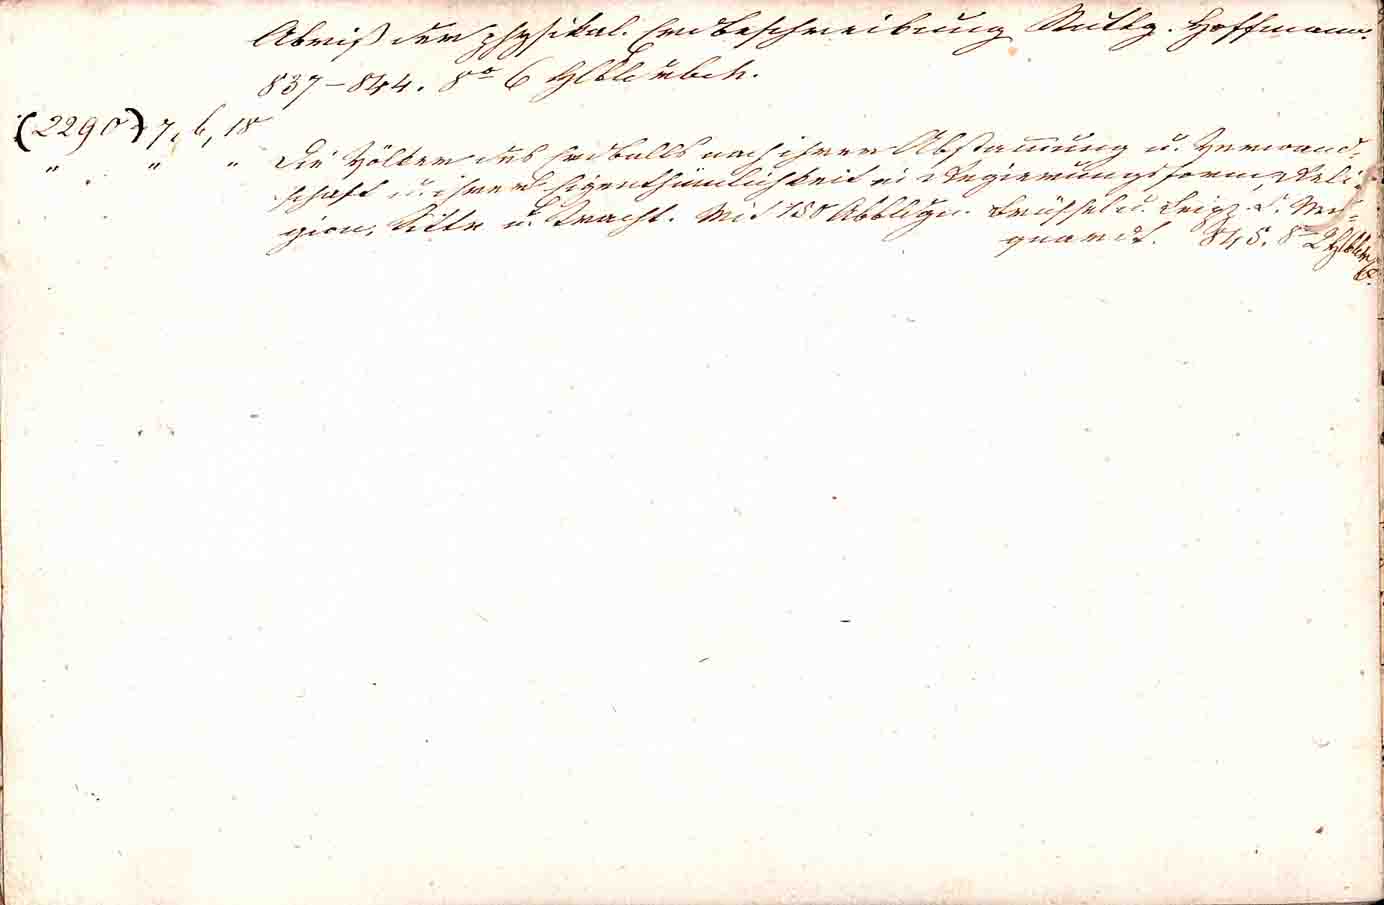 Abriß der physikal. Erdbeschreibung Stuttg. Hoffmann.
837–844. 8° 6 Hblederbde.
(2290) 7, 6, 18
" " " Die Völker des Erdballs nach ihrer Abstammung u. Verwand-
schaft u. ihren Eigenthümlichkeit in Regierungsform, Reli-
gion, Sitte u. Tracht. Mit 150 Abbildgn. Brüssel u. Leipz. C. Mu-
quardt. 845. 8° 2